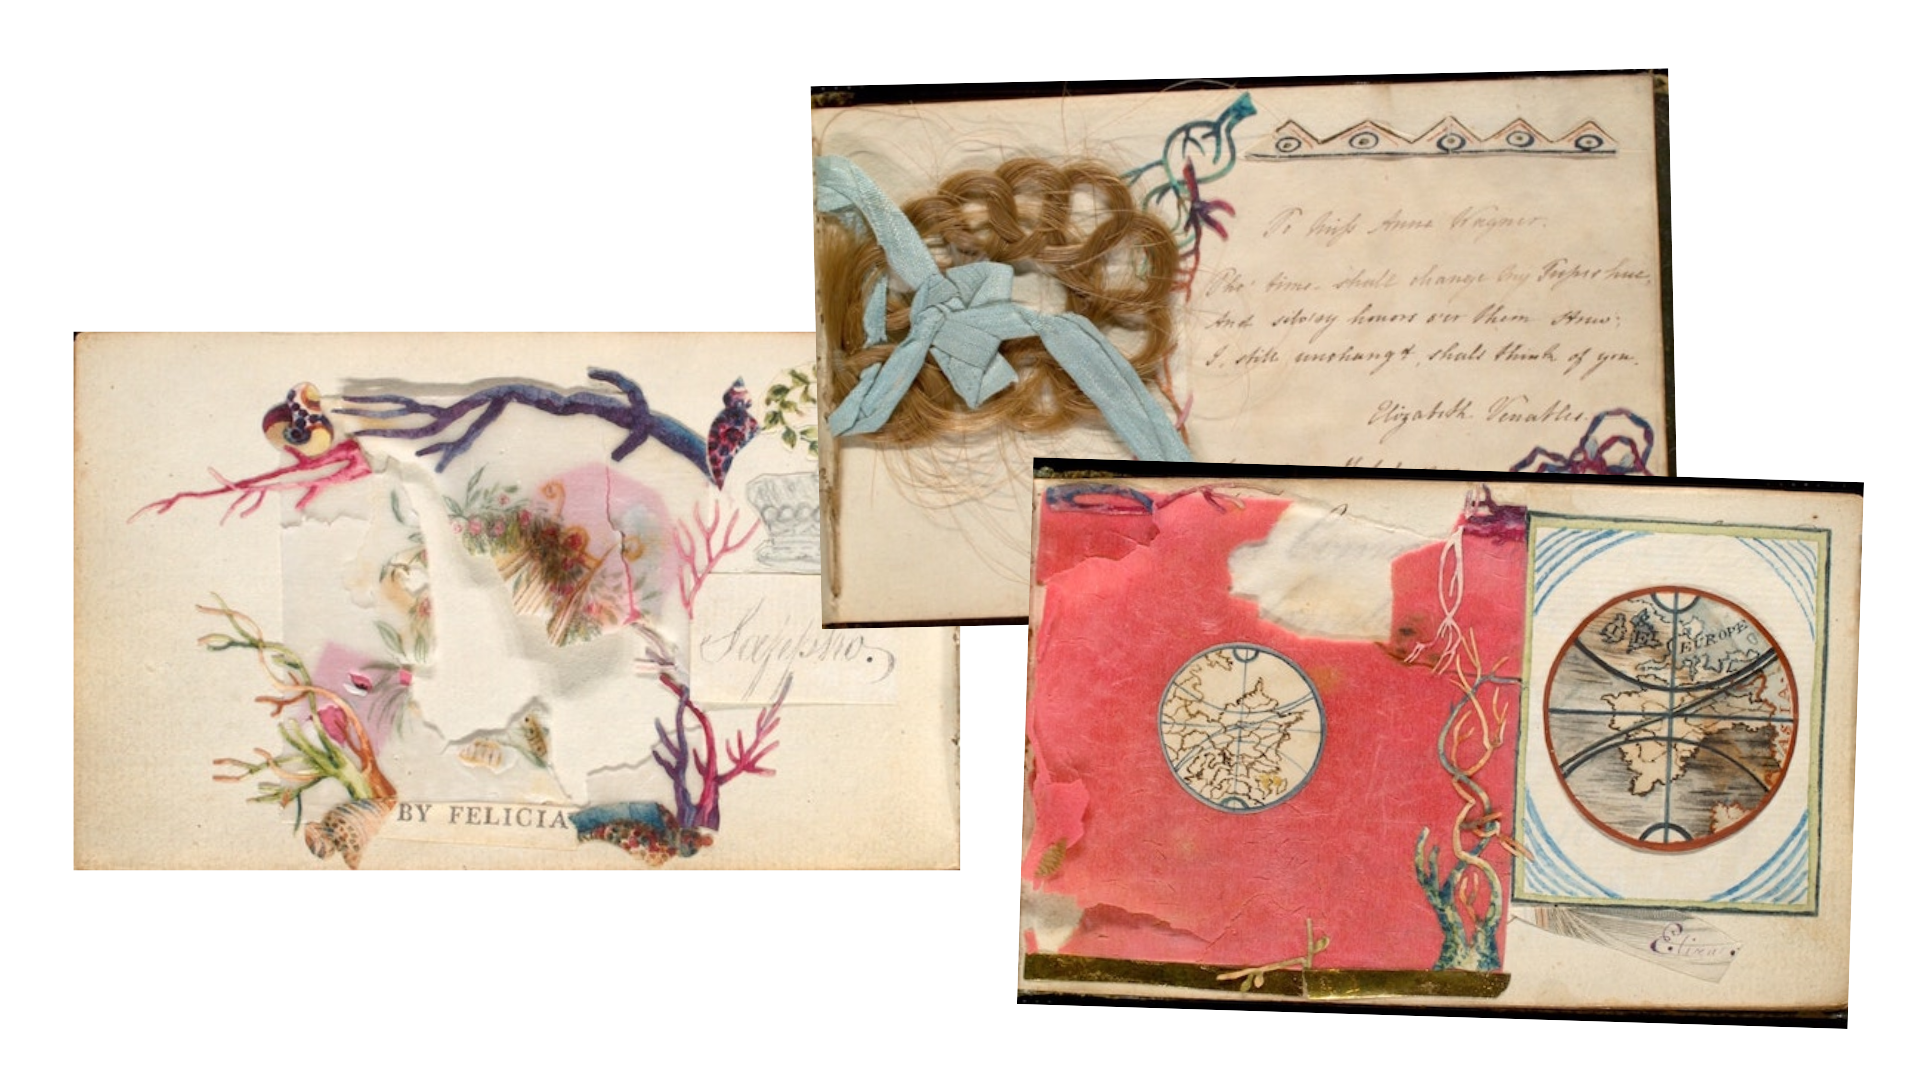 BY FELICIA
Sappho.
To Miss Anne Wagner.
Tho' time shall change my Tresses hue,
And silv'ry honors o'er them strew;
I, still unchang'd, shall think of you.
Elizabeth Venables.
EUROPE
ASIA
Eliza